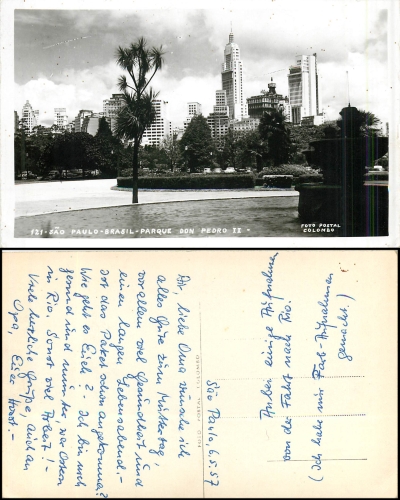 121 - SÃO PAULO - BRASIL - PARQUE DON PEDRO II -
FOTO POSTAL
COLOMBO
São Paulo 6.5.57
Dir, liebe Oma wünsche ich
alles Gute zum Muttertag!
vor allem viel Gesundheit und
einen langen Lebensabend. -
Ist das Paket schon angekommen?
Wie geht es Euch? Ich bin noch
gesund und munter, war Ostern
in Rio. Sonst viel Arbeit! -
Viele herzliche Grüße, auch an
Opa, Euer Horst. -
Anbei einige Aufnahmen
von der Fahrt nach Rio!
(Ich habe nur Farb-Aufnahmen
gemacht.)